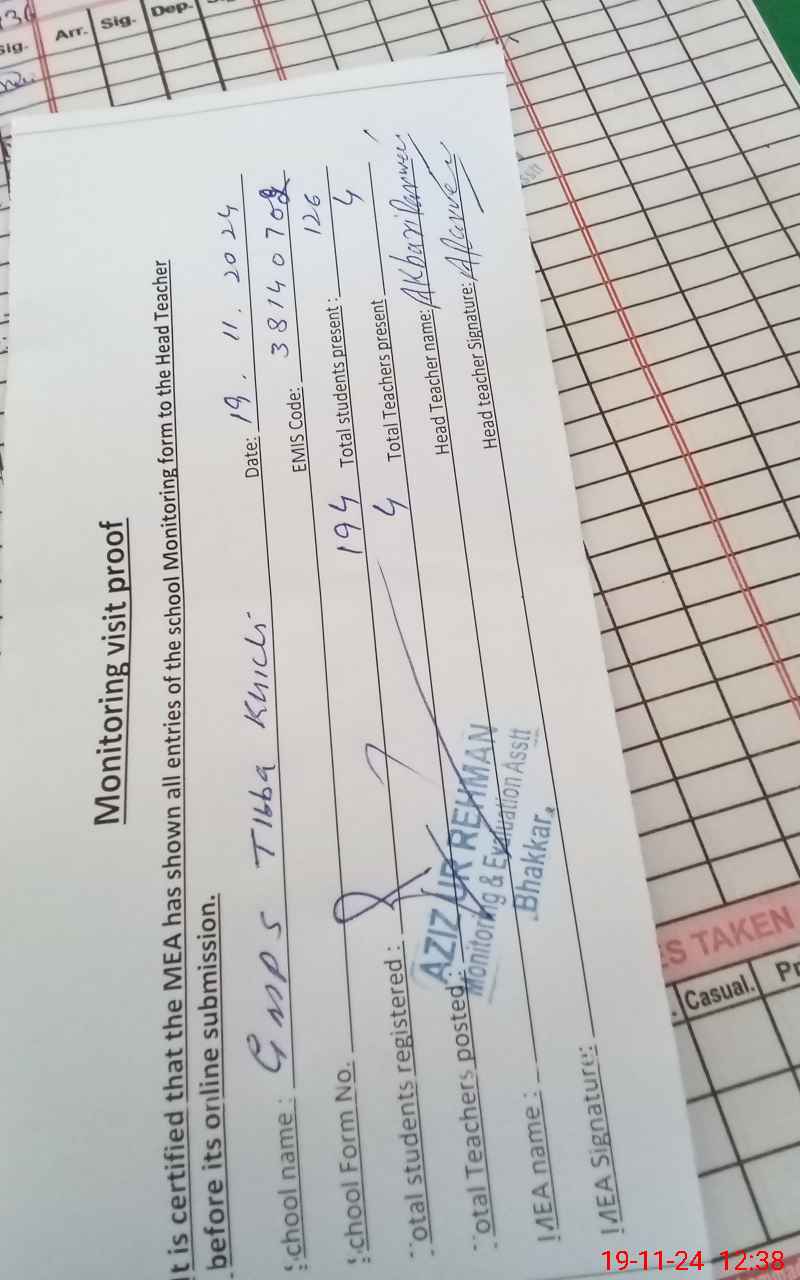 Arr. Sig. Dep.
Monitoring visit proof
It is certified that the MEA has shown all entries of the school Monitoring form to the Head Teacher
before its online submission.
School name : GMPS Tibba Khichi Date: 19 . 11 . 2024
School Form No. EMIS Code: 38140702
Total students registered : 194 Total students present : 126
Total Teachers posted : 4 Total Teachers present 4
MEA name : Head Teacher name: Akbari Parveen
MEA Signature: Head teacher Signature: AParveen
AZIZ UR REHMAN
Monitoring & Evaluation Asstt
Bhakkar.
S TAKEN
Casual.
19-11-24 12:38